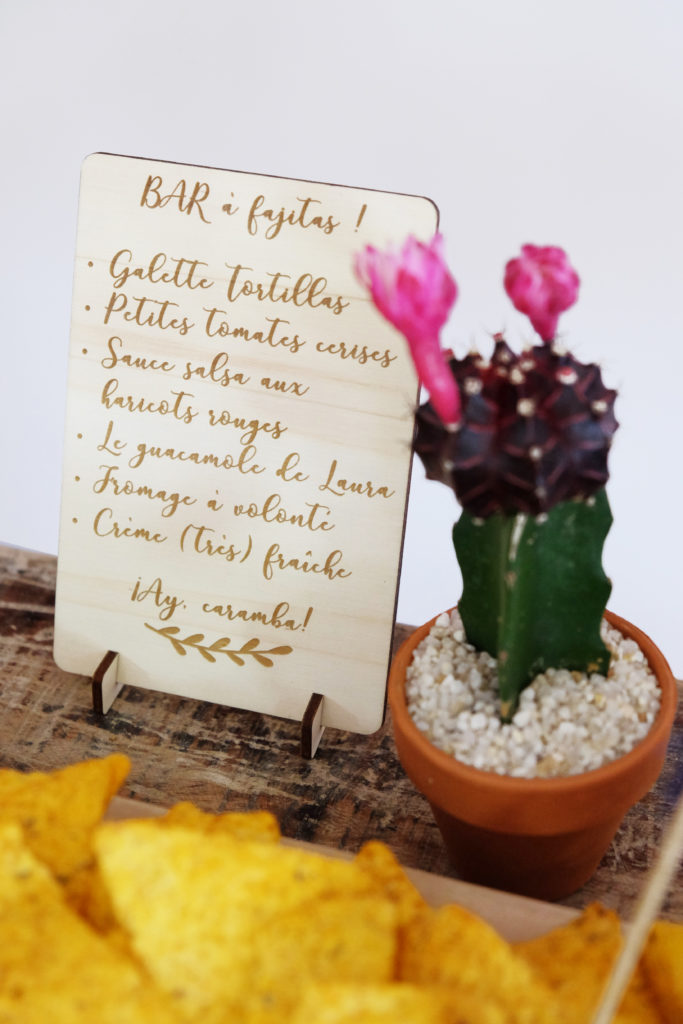 BAR à fajitas !
• Galette tortillas
• Petites tomates cerises
• Sauce salsa aux
haricots rouges
• Le guacamole de Laura
• Fromage à volonté
• Crème (très) fraîche
¡Ay, caramba!